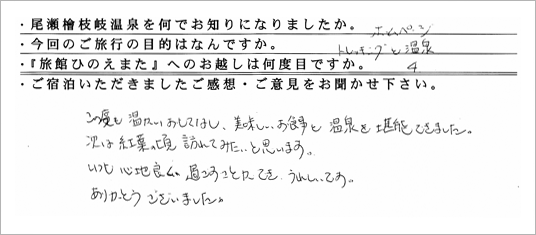 ・尾瀬檜枝岐温泉を何でお知りになりましたか。 ホームページ
・今回のご旅行の目的はなんですか。 トレッキングと温泉
・『旅館ひのえまた』へのお越しは何度目ですか。 4
・ご宿泊いただきましたご感想・ご意見をお聞かせ下さい。
この度も温かいおもてなし、美味しいお食事と温泉を堪能できました。
次は紅葉の頃訪れてみたいと思います。
いつも心地良く過ごすことができ、うれしいです。
ありがとうございました。